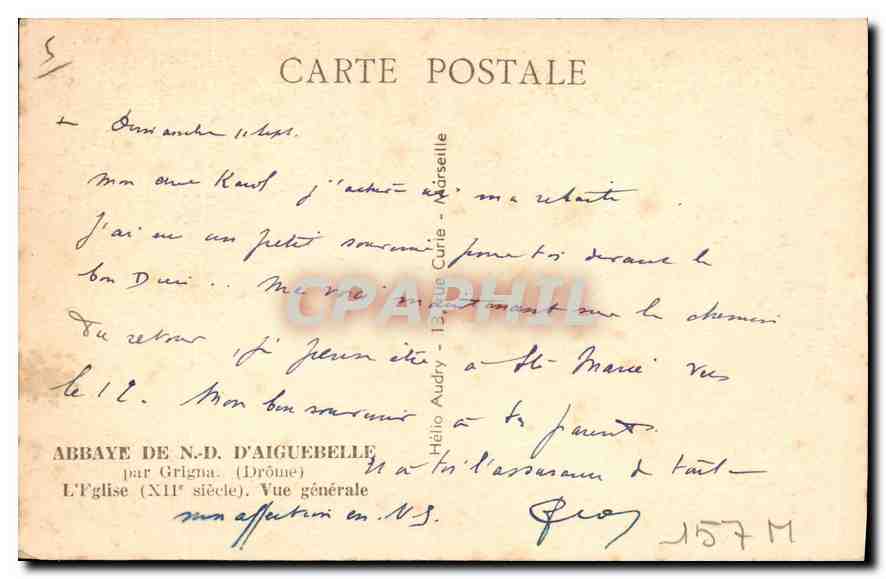 5
CARTE POSTALE
+ Dimanche 11 sept.
mon cher j'achève ici ma retraite.
J'ai eu un petit souvenir pour toi devant le
bon Dieu.. Me voici maintenant sur le chemin
du retour, je pense être à Ste Marie vers
le 12. Mon bon souvenir à tes parents.
Et à toi l'assurance de toute
mon affection en N.S.
ABBAYE DE N.-D. D'AIGUEBELLE
par Grigna. (Drôme)
L'Eglise (XIIe siècle). Vue générale
Hélio Audry - 13, Rue Curie - Marseille
CPAPHIL
157M